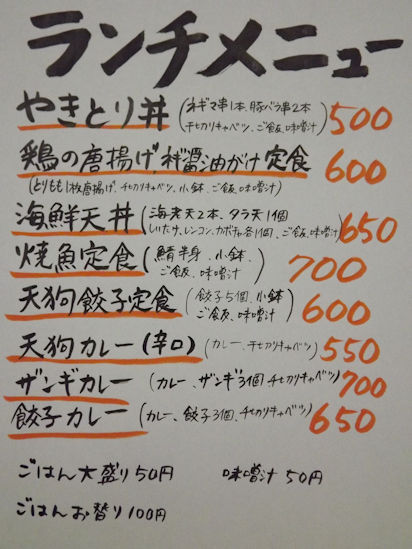 ランチメニュー
やきとり丼 (ネギマ串1本、豚バラ串2本 500
千切りキャベツ、ご飯、味噌汁)
鶏の唐揚げ ネギ醤油がけ 定食 600
(とりもも1枚唐揚げ、千切りキャベツ、小鉢、ご飯、味噌汁)
海鮮天丼 (海老天2本、タラ天1個 650
しいたけ、レンコン、カボチャ各1個、ご飯、味噌汁)
焼魚定食 (鯖半身、小鉢、 700
ご飯、味噌汁)
天狗餃子定食 (餃子5個、小鉢 600
ご飯、味噌汁)
天狗カレー(辛口) (カレー、千切りキャベツ) 550
ザンギカレー (カレー、ザンギ3個 千切りキャベツ) 700
餃子カレー (カレー、餃子3個、千切りキャベツ) 650
ごはん大盛り50円 味噌汁 50円
ごはんお替り100円